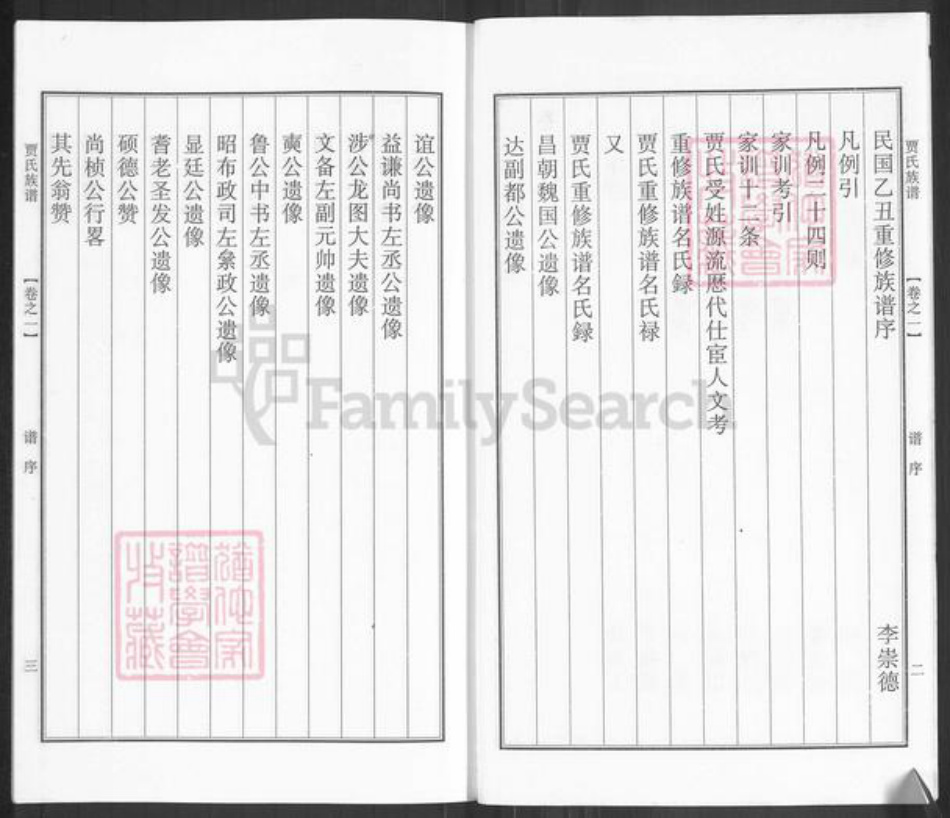 贾氏族谱 【卷之一】 谱序 二
民国乙丑重修族谱序 李崇德
凡例引
凡例二十四则
家训考引
家训十二条
贾氏受姓源流历代仕宦人文考
重修族谱名氏録
贾氏重修族谱名氏禄
又
贾氏重修族谱名氏録
昌朝魏国公遗像
达副都公遗像
谊公遗像
益谦尚书左丞公遗像
涉公龙图大夫遗像
文备左副元帅遗像
奭公遗像
鲁公中书左丞遗像
昭布政司左叅政公遗像
显廷公遗像
耆老圣发公遗像
硕德公赞
尚桢公行畧
其先翁赞
贾氏族谱 【卷之一】 谱序 三
FamilySearch